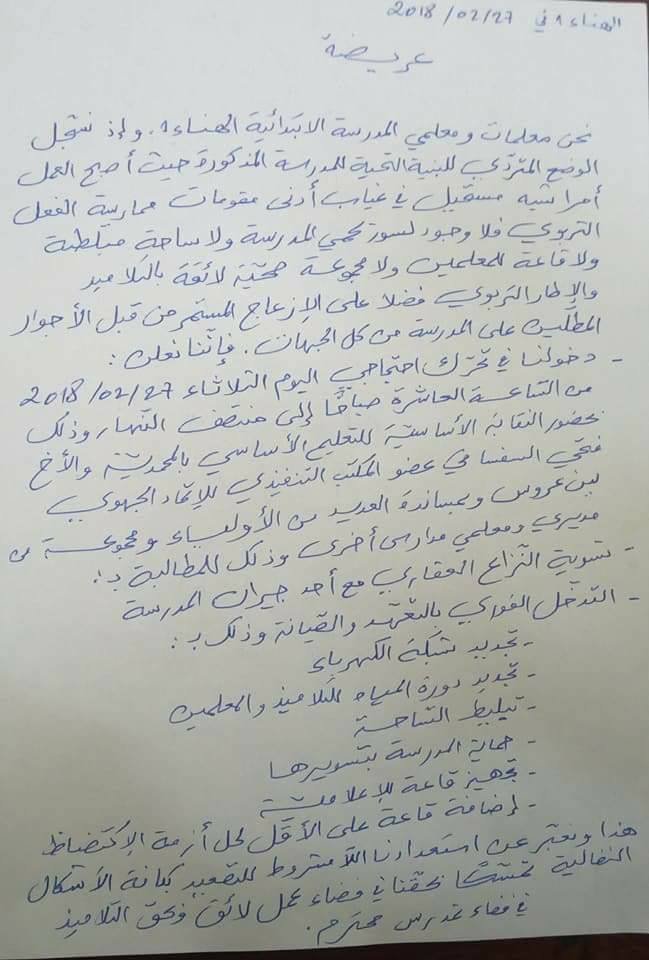 الهناء 1 في 2018/02/27
عريضة
نحن معلمات و معلمي المدرسة الابتدائية الهناء 1. وإذ نسجل
الوضع المتردّي للبنية التحتية للمدرسة المذكورة حيث أصبح العمل
أمرا شبه مستحيل في غياب أدنى مقومات ممارسة الفعل
التربوي فلا وجود لسور يحمي المدرسة ولا ساحة مبلطة
ولا قاعة للمعلمين ولا مجموعة صحّيّة لائقة بالتلاميذ
والإطار التربوي فضلا على الإزعاج المستمر من قبل الأجوار
المطلّين على المدرسة من كل الجهات. فإنّنا نعلن:
- دخولنا في تحرّك احتجاجي اليوم الثلاثاء 2018/02/27
من السّاعة العاشرة صباحًا إلى منتصف النّهار وذلك
بحضور النقابة الأساسيّة للتعليم الأساسي بالمحمدية والأخ
فتحي السفسافي عضو المكتب التنفيذي للإتحاد الجهوي
ببن عروس وبمساندة العديد من الأولياء ومجموعة من
مديري ومعلمي مدارس أخرى وذلك للمطالبة بـ:
- تسوية النّزاع العقاري مع أحد جيران المدرسة
- التدخل الفوري بالتعهّد والصّيانة وذلك بـ:
- تجديد شبكة الكهرباء
- تجديد دورة المياه للتلاميذ والمعلمين
- تبليط السّاحة
- حماية المدرسة بتسويرها
- تجهيز قاعة للإعلاميّة
- إضافة قاعة على الأقل لحل أزمة الإكتضاظ
هذا ونعبّر عن استعدادنا اللاّمشروط للتصعيد بكافة الأشكال
النضالية تمسّكا بحقّنا في فضاء عمل لائق وبحق التلاميذ
في فضاء تمدرس محترم.